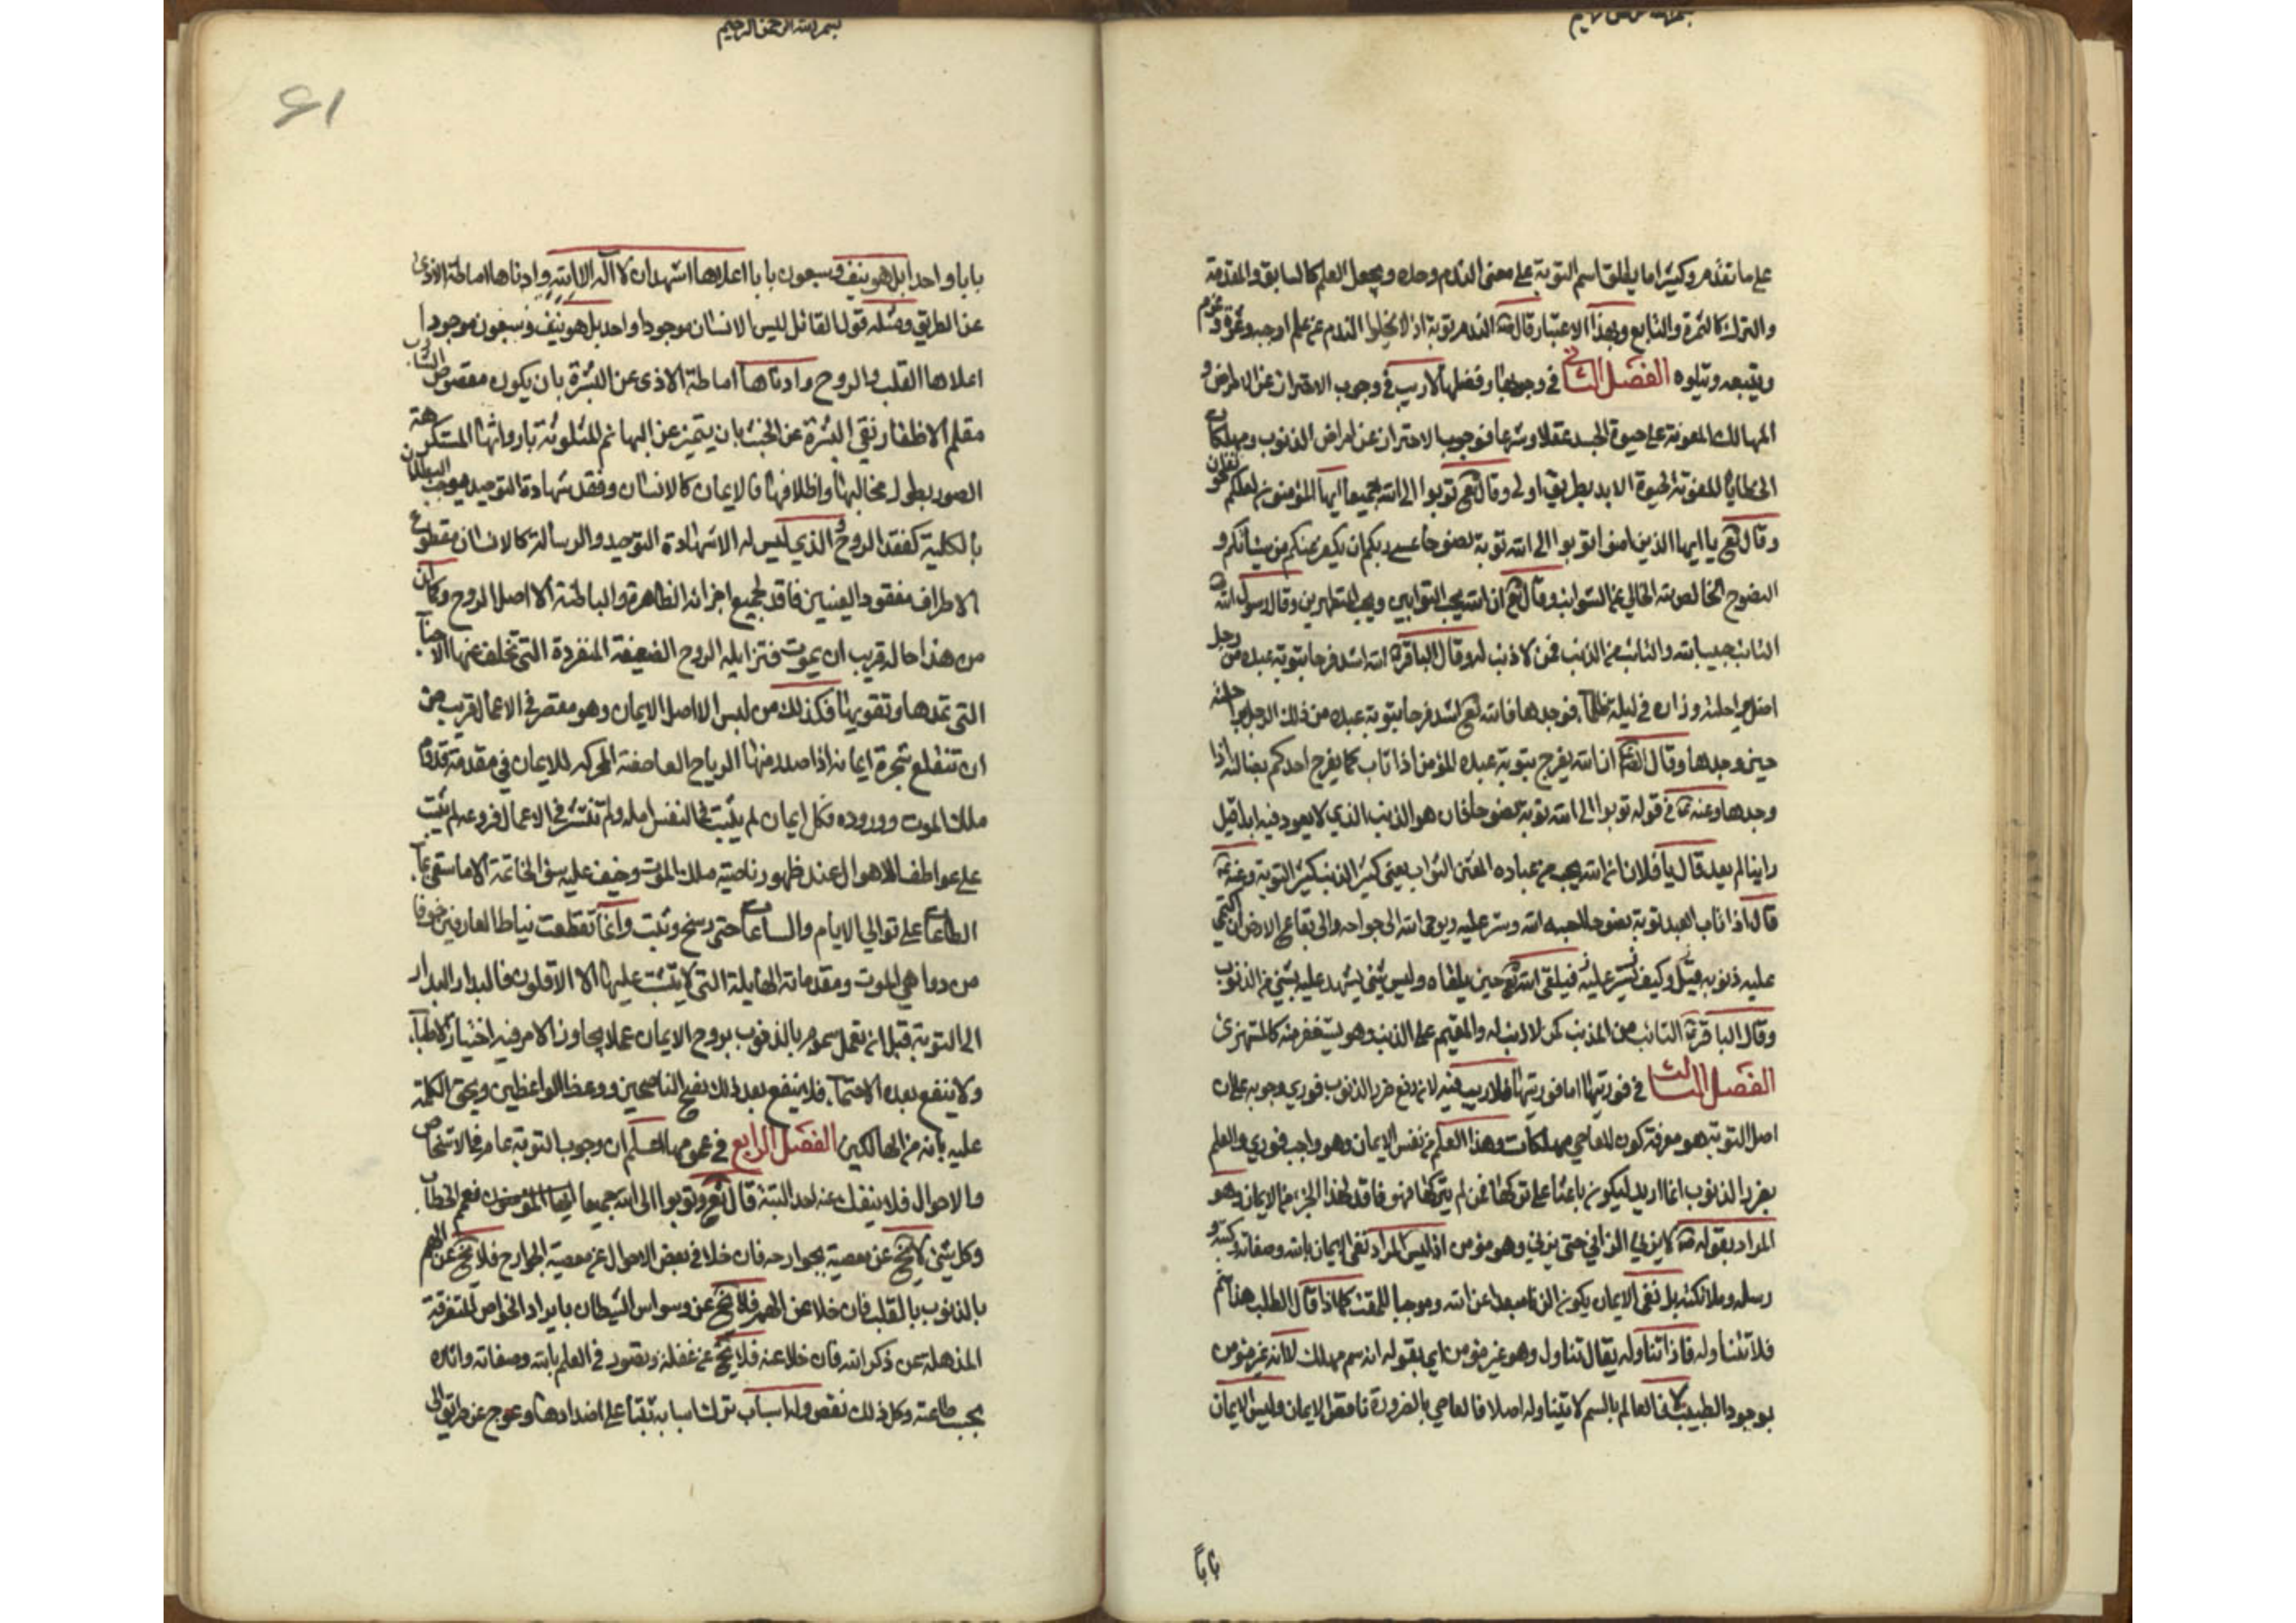 بسم الله الرحمن الرحيم
على ما تقدم وكثيرا ما يطلق اسم التوبة على معنى الندم وحده ويجعل العلم كالسابق والمقدمة
والترك كالثمرة والتابع وبهذا الاعتبار قال ص الندم توبة اذ لا يخلوا الندم عن علم اوجبه وثمره وعزم
ويتبعه ويتلوه الفصل الثاني في وجوبها وفضلها لا ريب في وجوب الاحتراز عن الامراض و
المهالك المفوتة على حيوة الجسد عقلا وشرعا فوجوب الاحتراز عن امراض الذنوب ومهلكات
الخطايا المفوتة لحيوة الابد بطريق اولى وقال تع توبوا الى الله جميعا ايها المؤمنون لعلكم تفلحون
وقال تع يا ايها الذين امنوا توبوا الى الله توبة نصوحا عسى ربكم ان يكفر عنكم من سيئاتكم و
النصوح الخالصة لله الخالي عن الشوايب وقال تع ان الله يحب التوابين ويحب المتطهرين وقال رسول الله ص
التائب حبيب الله والتائب من الذنب كمن لا ذنب له وقال الباقر ع الله اشد فرحا بتوبة عبده من رجل
اضل راحلته وزاده في ليلة ظلماء فوجدها فالله تع اشد فرحا بتوبة عبده من ذلك الرجل براحلته
حين وجدها وقال الصع ان الله يفرح بتوبة عبده المؤمن اذا تاب كما يفرح احدكم بضالته اذا
وجدها وعنه ع في قوله توبوا الى الله توبة نصوحا قال هو الذنب الذي لا يعود فيه ابدا قيل
واينا لم يعد قال يا فلان ان الله يحب من عباده المفتن التواب يعني كثير الذنب كثير التوبة وعنه ع
قال اذا تاب العبد توبة نصوحا احبه الله وستر عليه ويوحي الله الى جوارحه والى بقاع الارض ان اكتمي
عليه ذنوبه قيل وكيف يستر عليه فيلقى الله تع حين يلقاه وليس شئ يشهد عليه بشئ من الذنوب
وقال الباقر ع التائب من الذنب كمن لا ذنب له والمقيم على الذنب وهو يستغفر منه كالمستهزئ
الفصل الثالث في فوريتها اما فوريتها فلا ريب فيه لان دفع ضرر الذنوب فوري وجوبه على ان
اصل التوبة هو معرفة كون المعاصي مهلكات وهذا العلم من نفس الايمان وهو واجب فوري والعلم
بضرر الذنوب انما اريد ليكون باعثا على تركها فمن لم يتركها فهو فاقد لهذا الجزء من الايمان وهو
المراد بقوله ص لا يزني الزاني حين يزني وهو مؤمن اذ ليس المراد نفي الايمان بالله وصفاته وكتبه و
رسله وملائكته بل نفي الايمان بكون الزنا مبعدا عن الله وموجبا للمقت كما اذا قال الطبيب هذا سم
فلا تتناوله فاذا تناوله يقال تناول وهو غير مؤمن اي بقوله انه سم مهلك لا انه غير مؤمن
بوجود الطبيب فالعالم بالسم لا يتناوله اصلا فالعاصي بالضرورة ناقص الايمان وليس الايمان
بابا
بسم الله الرحمن الرحيم
61
بابا واحدا بل هو نيف وسبعون بابا اعلاها اشهد ان لا اله الا الله وادناها اماطة الاذى
عن الطريق ومثله قول القائل ليس الانسان موجودا واحدا بل هو نيف وسبعون موجودا
اعلاها القلب والروح وادناها اماطة الاذى عن البشرة بان يكون مقصوص الشارب
مقلم الاظفار نقي البشرة عن الخبث بان يتميز عن البهائم المتلوثة بارواثها المستكرهة
الصور بطول مخالبها واظلافها فالايمان كالانسان وفقد شهادة التوحيد يوجب البطلان
بالكلية كفقد الروح والذي ليس له الا شهادة التوحيد والرسالة كالانسان مقطوع
الاطراف مفقود العينين فاقد لجميع اجزائه الظاهرة والباطنة الا اصل الروح وكما ان
من هذا حاله قريب ان يموت فتزايله الروح الضعيفة المنفردة التي تخلف عنها الاعضاء
التي تمدها وتقويها فكذلك من ليس له الا اصل الايمان وهو مقصر في الاعمال قريب من
ان تنقلع شجرة ايمانه اذا صدمتها الرياح العاصفة المحركة للايمان في مقدمة قدوم
ملك الموت ووروده فكل ايمان لم يثبت في النفس اصله ولم تنتشر في الاعمال فروعه لم يثبت
على عواصف الاهوال عند ظهور ناصية ملك الموت وخيف عليه سوء الخاتمة الا ما سقي بماء
الطاعات على توالي الايام والساعات حتى رسخ وثبت وانما تقطعت نياط العارفين خوفا
من دواهي الموت ومقدماته الهايلة التي لا يثبت عليها الا الاقلون فالبدار البدار
الى التوبة قبل ان تعمل سموم الذنوب بروح الايمان عملا يجاوز الامر فيه اختيار الاطباء
ولا ينفع بعده الاحتماء فلا ينفع بعد ذلك نصح الناصحين ووعظ الواعظين ويحق الكلمة
عليه بانه من الهالكين الفصل الرابع في عمومها اعلم ان وجوب التوبة عام في الاشخاص
والاحوال فلا ينفك عنه احد البتة قال تع وتوبوا الى الله جميعا ايها المؤمنون فعمم الخطاب
وكل شئ لا يخ عن معصية بجوارحه فان خلا في بعض الاحوال عن معصية الجوارح فلا يخ عن الهم
بالذنوب بالقلب فان خلا عن الهم فلا يخ عن وسواس الشيطان بايراد الخواطر المتفرقة
المذهلة عن ذكر الله فان خلا عنه فلا يخ عن غفلة وقصور في العلم بالله وصفاته واثاره
بحسب طاعته وكل ذلك نقص وله اسباب وترك اسبابه على اضدادها رجوع عن طريق الى